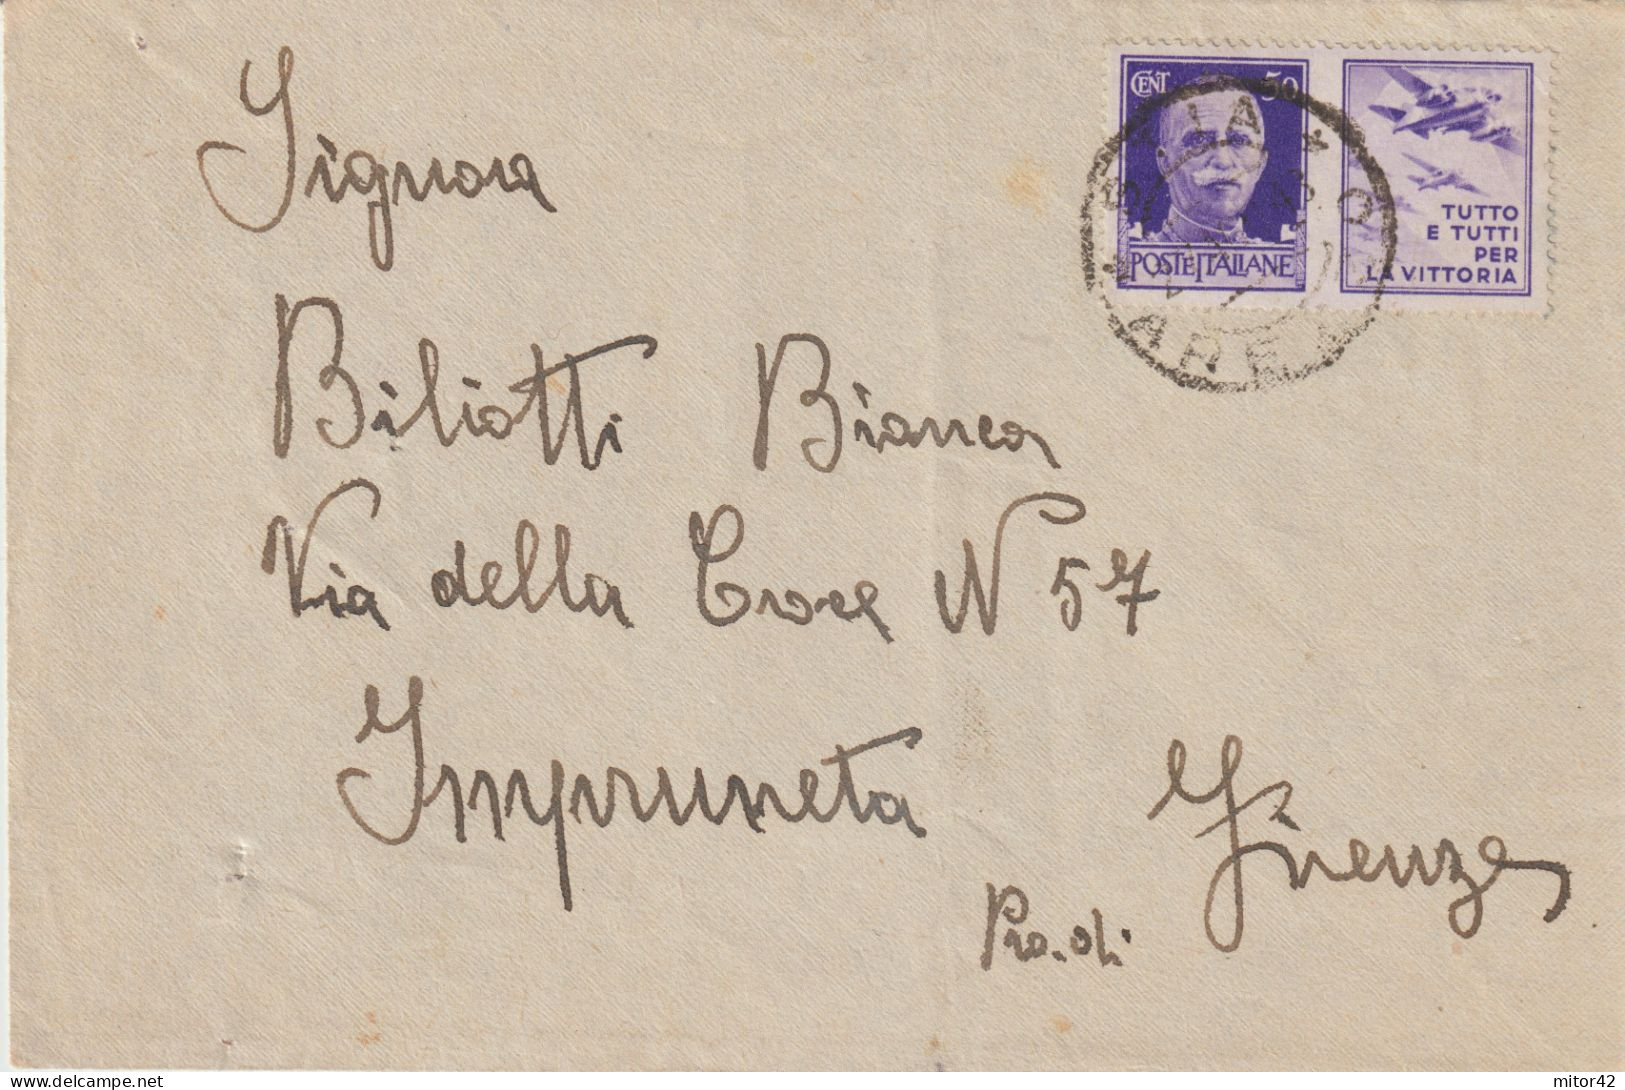 CENT 50
POSTE ITALIANE
TUTTO
E TUTTI
PER
LA VITTORIA
Signora
Biliotti Bianca
Via della Croce N 57
Impruneta
Pro. di Firenze
mitor42